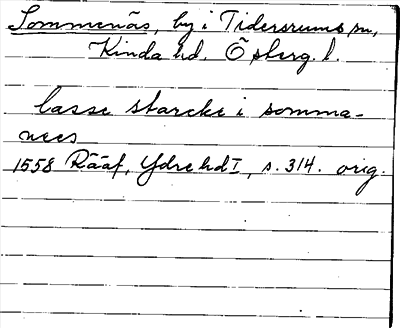 Sommenäs, by i Tidersrums sn,
Kinda hd. Österg. l.
lasse starcke i somma-
nees
1558 Rääf, Ydre hd I, s. 314. orig.